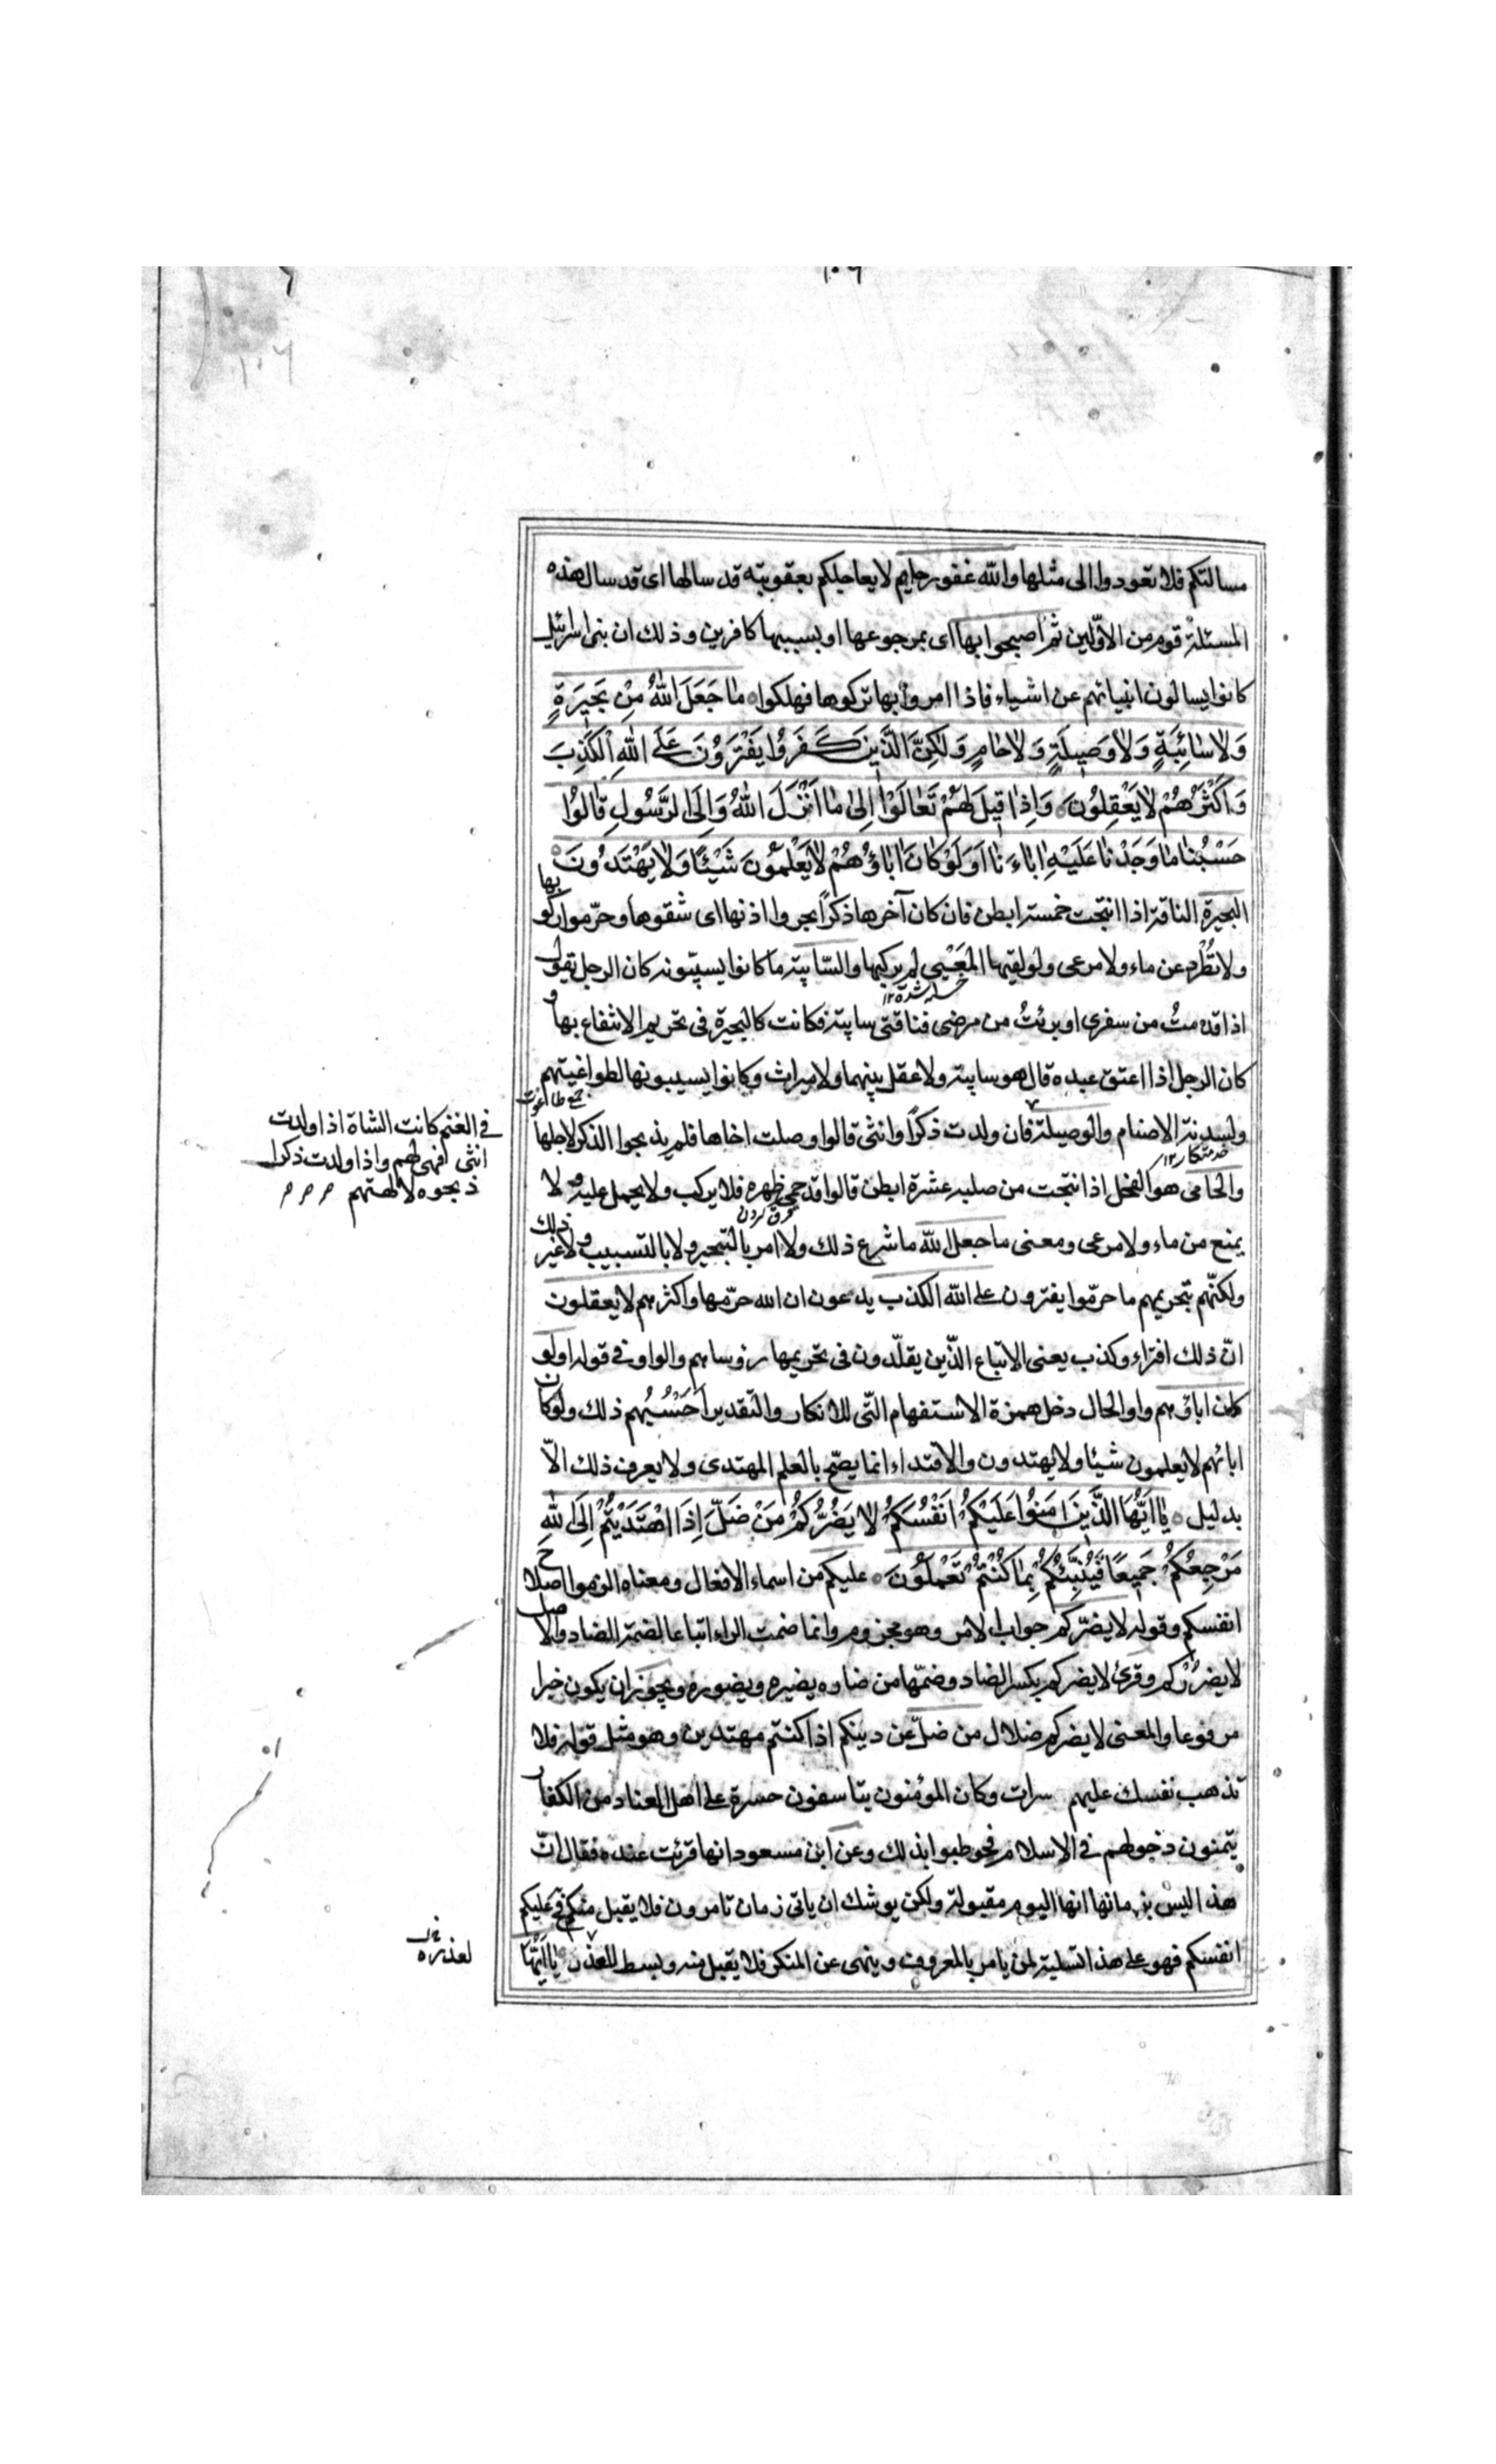 مسالتكم فلا تعودوا الى مثلها والله غفور حليم لا يعاجلكم بعقوبته قد سالها اى قد سال هذه
المسئلة قوم من الاوّلين ثم اصبحوا بها اى بمرجوعها او بسببها كافرين وذلك ان بنى اسرائيل
كانوا يسالون انبيائهم عن اشياء فاذا امروا بها تركوها فهلكوا مٰا جَعَلَ اللّٰهُ مِنْ بَحِيرَةٍ
وَلاٰ سٰائِبَةٍ وَلاٰ وَصِيلَةٍ وَلاٰ حٰامٍ وَلٰكِنَّ الَّذِينَ كَفَرُوا يَفْتَرُونَ عَلَى اللّٰهِ الْكَذِبَ
وَاَكْثَرُهُمْ لاٰ يَعْقِلُونَ وَاِذٰا قِيلَ لَهُمْ تَعٰالَوْا اِلىٰ مٰا اَنْزَلَ اللّٰهُ وَاِلَى الرَّسُولِ قٰالُوا
حَسْبُنٰا مٰا وَجَدْنٰا عَلَيْهِ اٰبٰاءَنٰا اَوَلَوْ كٰانَ اٰبٰاؤُهُمْ لاٰ يَعْلَمُونَ شَيْئًا وَلاٰ يَهْتَدُونَ
البحيرة الناقة اذا انتجت خمسة ابطن فان كان آخرها ذكراً بحروا اذنها اى شقوها وحرّموا ركوبها
ولا تُطْرد عن ماء ولا مرعى ولو لقيها المُعْيى لم يركبها والسّايبة ما كانوا يسيّبونه كان الرجل يقول
اذا قدمتُ من سفرى او برئتُ من مرضى فناقتى سايبة فكانت كالبحيرة فى تحريم الانتفاع بها و
كان الرجل اذا اعتق عبده قال هو سايبة ولا عقل بينهما ولا ميراث وكانوا يسيبونها لطواغيتهم
جمع طاغوت
ولسدنة الاصنام والوصيلة فان ولدت ذكراً وانثى قالوا وصلت اخاها فلم يذبحوا الذكر لاجلها
خدمتكار ١٢
فى الغنم كانت الشاة اذا ولدت
انثى فهى لهم واذا ولدت ذكرا
ذبحوه لالهتهم
والحامى هو الفحل اذا نتجت من صلبه عشرة ابطن قالوا قد حمى ظهره فلا يركب ولا يحمل عليه ولا
يمنع من ماء ولا مرعى ومعنى ما جعل الله ما شرع ذلك ولا امر بالتبحير ولا بالتسييب ولا غير ذلك
ولكنّهم بتحريمهم ما حرّموا يفترون على الله الكذب يدعون ان الله حرّمها واكثرهم لا يعقلون
انّ ذلك افتراء وكذب يعنى الاتباع الّذين يقلّدون فى تحريمها رؤساهم والواو فى قوله اولو
كان اباؤهم واو الحال دخل همزة الاستفهام التّى للانكار والتقدير احَسْبُهم ذلك ولو كان
ابائهم لا يعلمون شيئا ولا يهتدون والاقتداء انما يصّح بالعلم المهتدى ولا يعرف ذلك الاّ
بدليل يٰا اَيُّهَا الَّذِينَ اٰمَنُوا عَلَيْكُمْ اَنْفُسَكُمْ لاٰ يَضُرُّكُمْ مَنْ ضَلَّ اِذَا اهْتَدَيْتُمْ اِلَى اللّٰهِ
مَرْجِعُكُمْ جَمِيعًا فَيُنَبِّئُكُمْ بِمٰا كُنْتُمْ تَعْمَلُونَ عليكم من اسماء الافعال ومعناه الزموا اصلاح
انفسكم وقوله لا يضرّكم جواب الامر وهو مجزوم وانما ضمت الراء اتباعا لضمة الضاد والاصل
لا يضرُرْكم وقرئ لا يضركم بكسر الضاد وضمّها من ضاره يضيره ويضوره ويجوز ان يكون خبرا
مرفوعا والمعنى لا يضركم ضلال من ضلّ عن دينكم اذا كنتم مهتدين وهو مثل قوله فلا
تذهب نفسك عليهم سرات وكان المؤمنون يتاسفون حسرة على اهل العناد من الكفار
يتمنون دخولهم فى الاسلام فخوطبوا بذلك وعن ابن مسعود انها قرئت عنده فقال انّ
هذا ليس بزمانها انها اليوم مقبولة ولكن يوشك ان ياتى زمان تامرون فلا يقبل منكم فح عليكم
انفسكم فهو على هذا تسلية لمن يامر بالمعروف وينهى عن المنكر فلا يقبل منه وبسط للعذر يٰا اَيُّهَا
لعذره